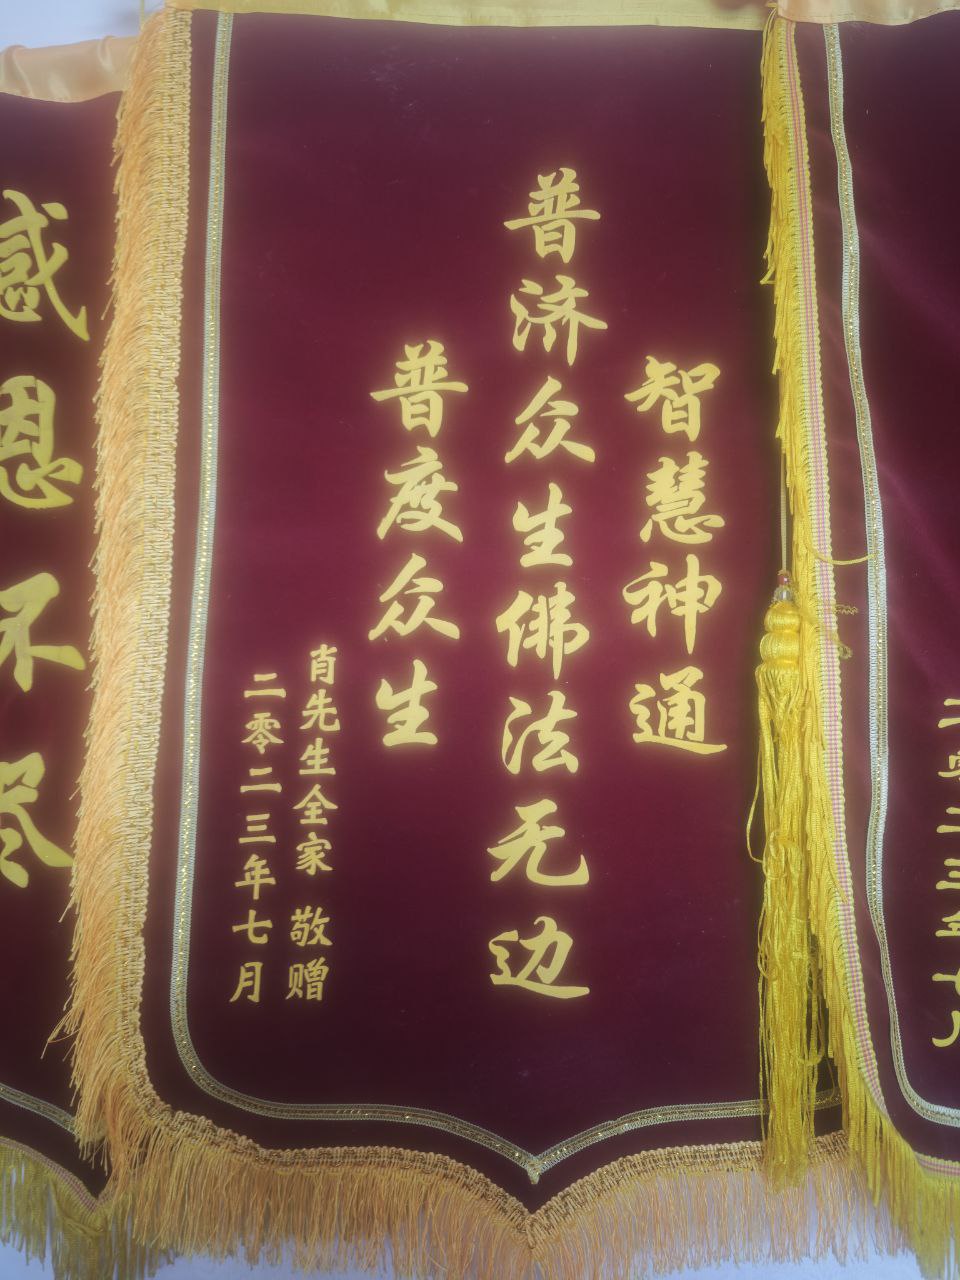 智慧神通
普济众生佛法无边
普度众生
肖先生全家 敬赠
二零二三年七月
感恩不尽